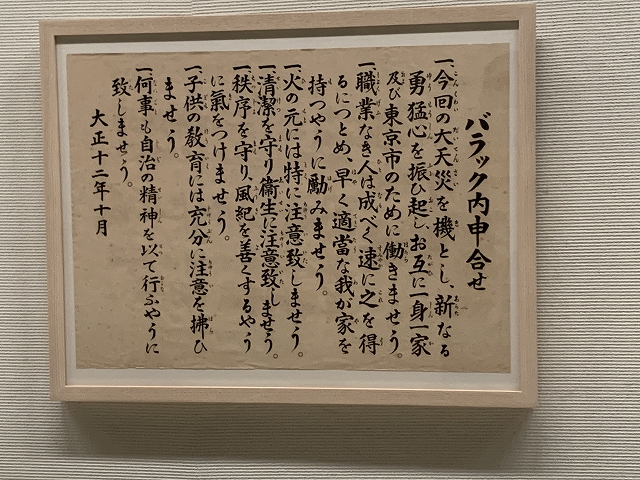 バラック内申合せ
一、今回の大天災を機とし、新なる
勇猛心を振ひ起し、お互に一身一家
及び東京市のために働きませう。
一、職業なき人は成べく速に之を得
るにつとめ、早く適當な我が家を
持つやうに勵みませう。
一、火の元には特に注意致しませう。
一、清潔を守り衞生に注意致しませう。
一、秩序を守り、風紀を善くするやう
に氣をつけませう。
一、子供の敎育には充分に注意を拂ひ
ませう。
一、何事も自治の精神を以て行ふやうに
致しませう。
大正十二年十月